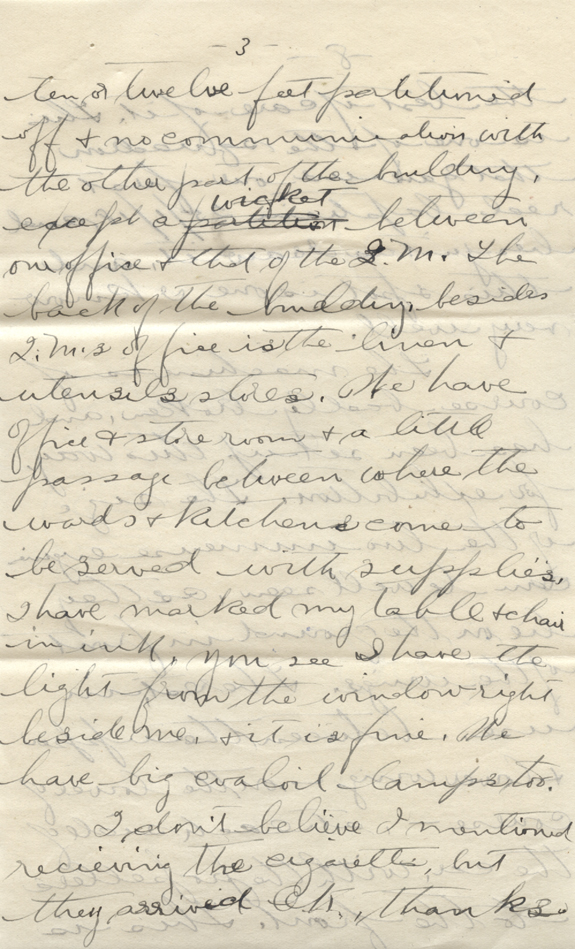 - 3 -
ten or twelve feet partitioned
off & no communication with
the other part of the building,
wicket
except a partition between
our office & that of the Q.M. The
back of the building, besides
Q.M.s office is the linen &
utensils stores. We have
office & store room & a little
passage between where the
wards & kitchens come to
be served with supplies.
I have marked my table & chair
in ink, you see I have the
light from the window right
beside me, & it is fine. We
have big coaloil lamps too.
I don't believe I mentioned
recieving the cigarette, but
they arrived O.K., thanks.